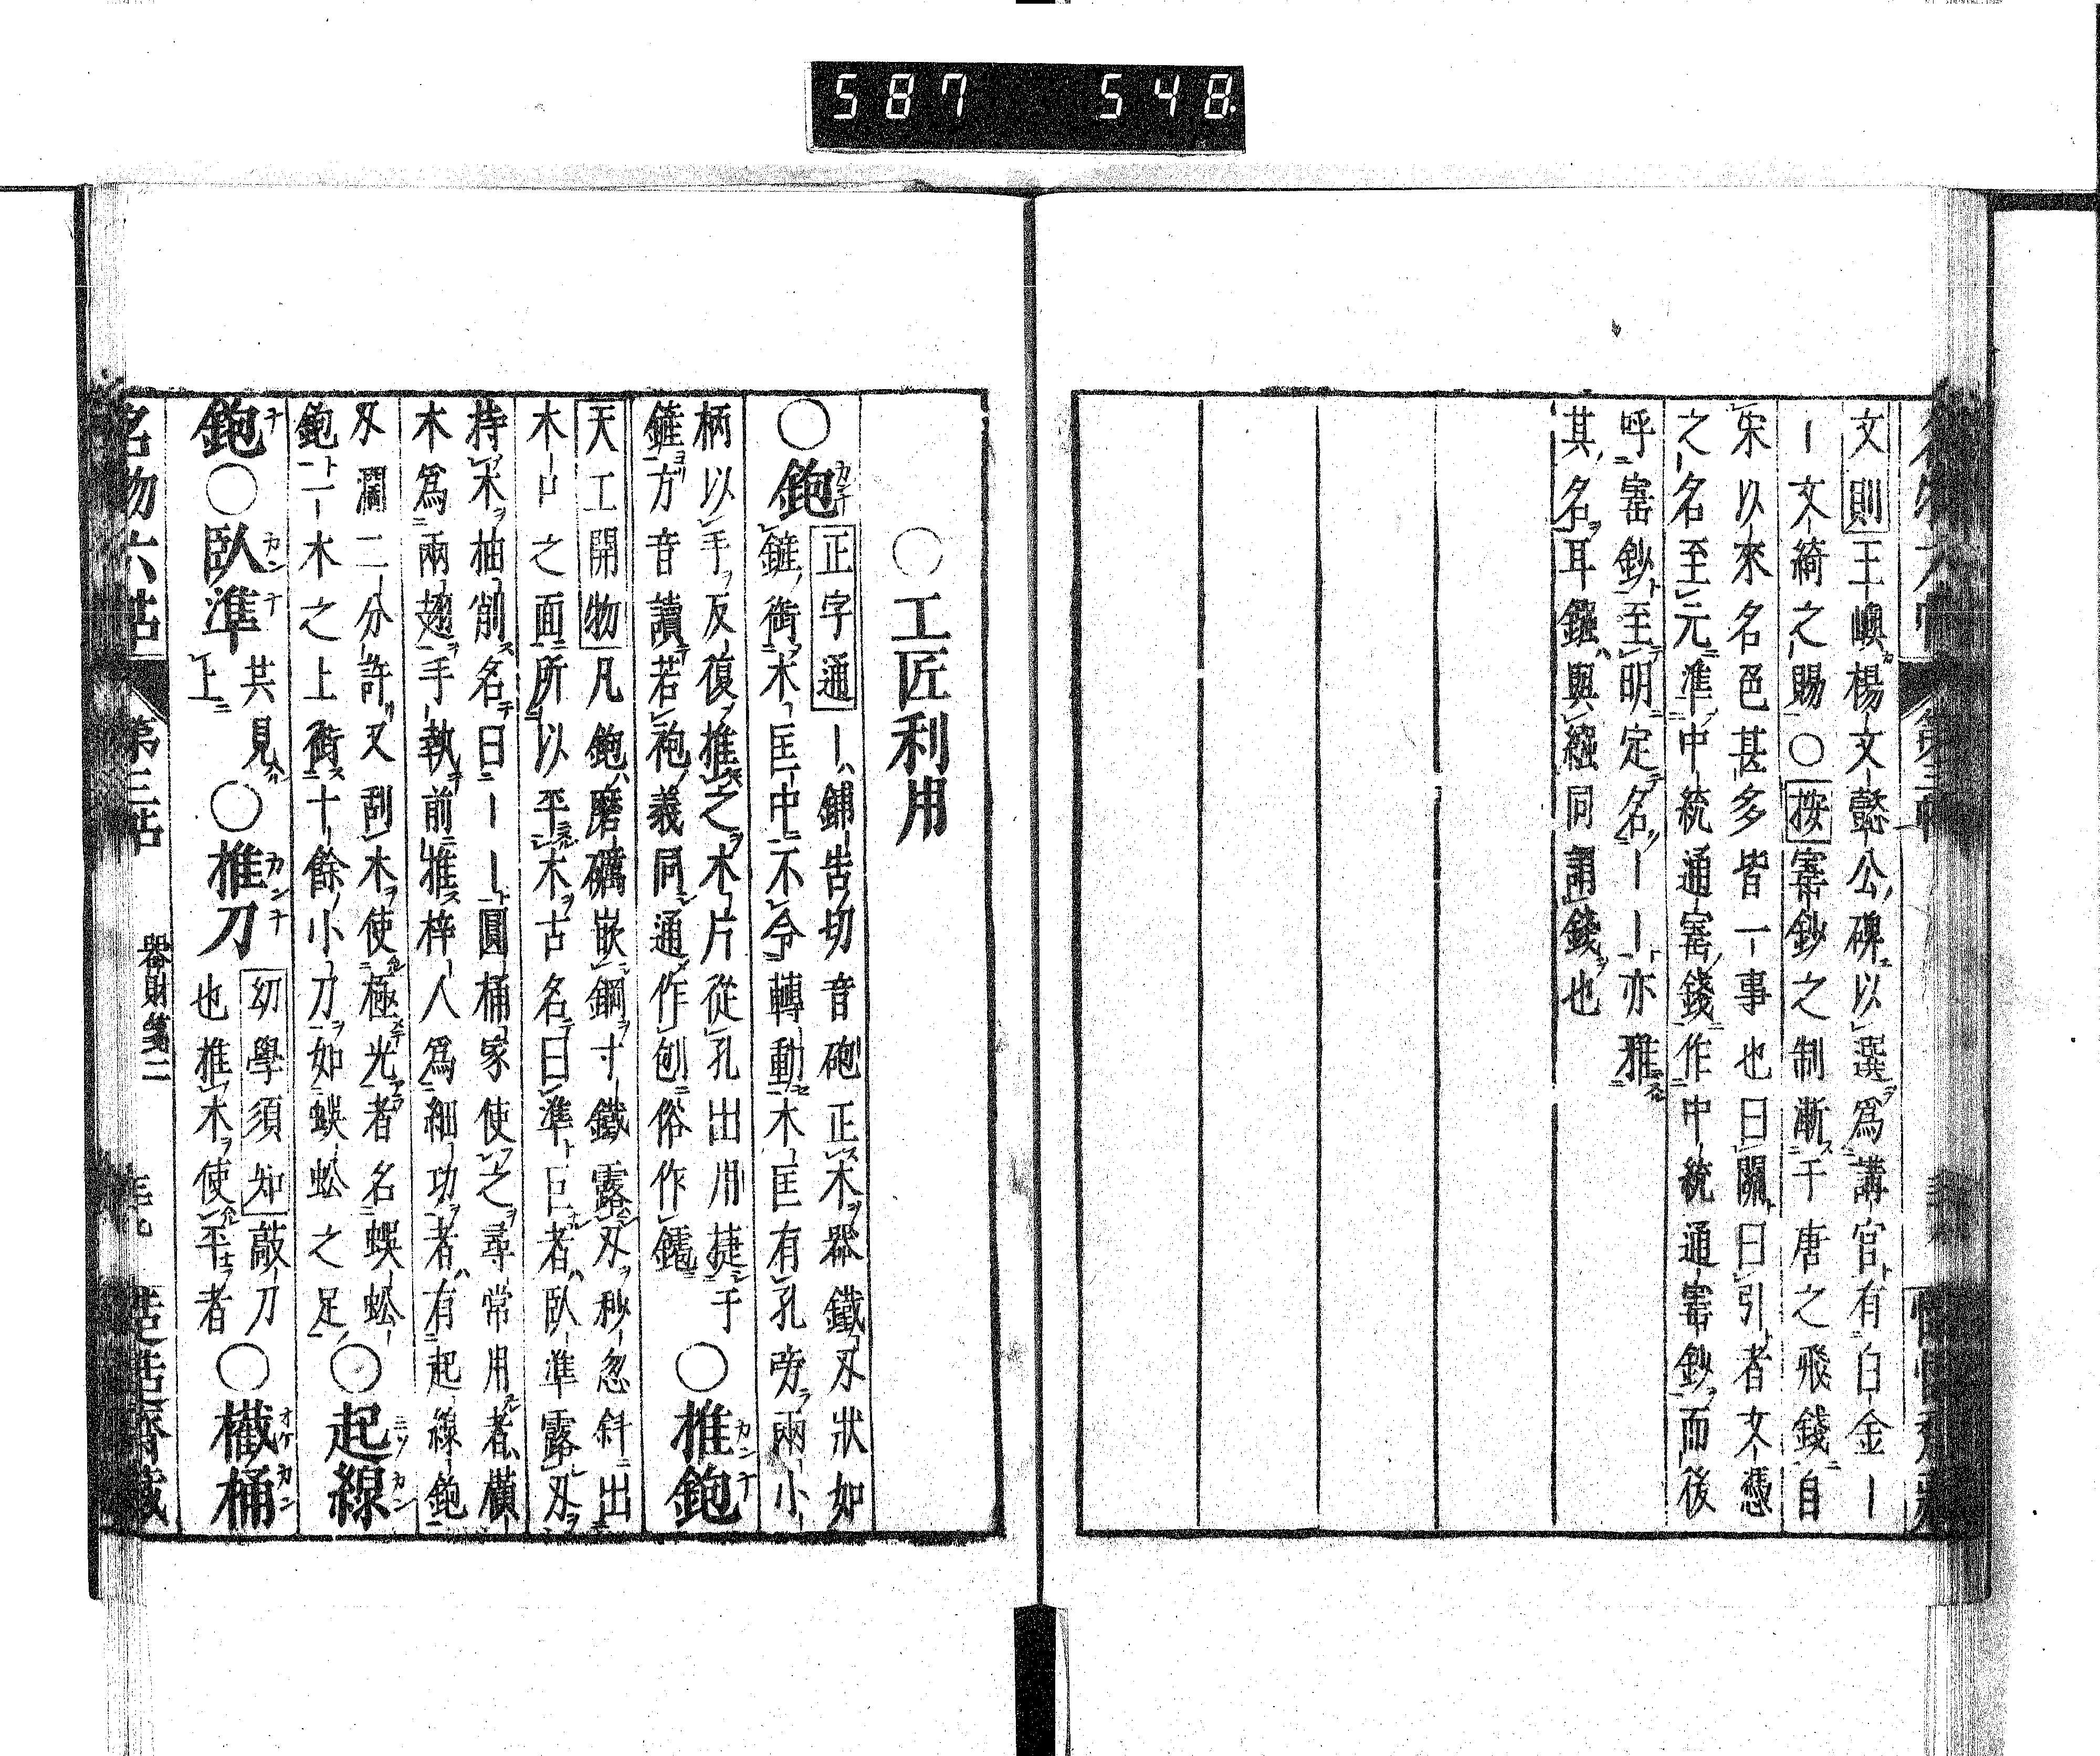 587 548
文則王嶼楊文懿公碑以選爲講官有白金一
一文綺之賜○按寶鈔之制漸于唐之飛錢自
宋以來名色甚多皆一事也曰關曰引者文憑
之名至元準中統通寶錢作中統通寶鈔而後
呼寶鈔至明定名一一亦雅
其名耳鏹與繦同謂錢也
○工匠利用
○鉋カンナ 正字通一鋪告切音砲正木器鐵刃狀如
鏟銜木匡中不令轉動木匡有孔旁兩小
柄以手反復推之木片從孔出用捷于
鏟方音讀若袍義同通作刨俗作鑤○推鉋カンナ
天工開物凡鉋磨礪嵌鋼寸鐵露刃秒忽斜出
木口之面所以平木古名曰準巨者臥準露刃
持木抽削名曰一一圓桶家使之尋常用者橫
木爲兩翅手執前推梓人爲細功者有起線鉋
刃濶二分許又刮木使極光者名蜈蚣
鉋一木之上銜十餘小刀如蜈蚣之足○起線
鉋○臥準カンナ 共見上○推刀カンナ 幼學須知敲刀
也推木使平者○櫼桶
名物六帖 第三帖 器財箋二